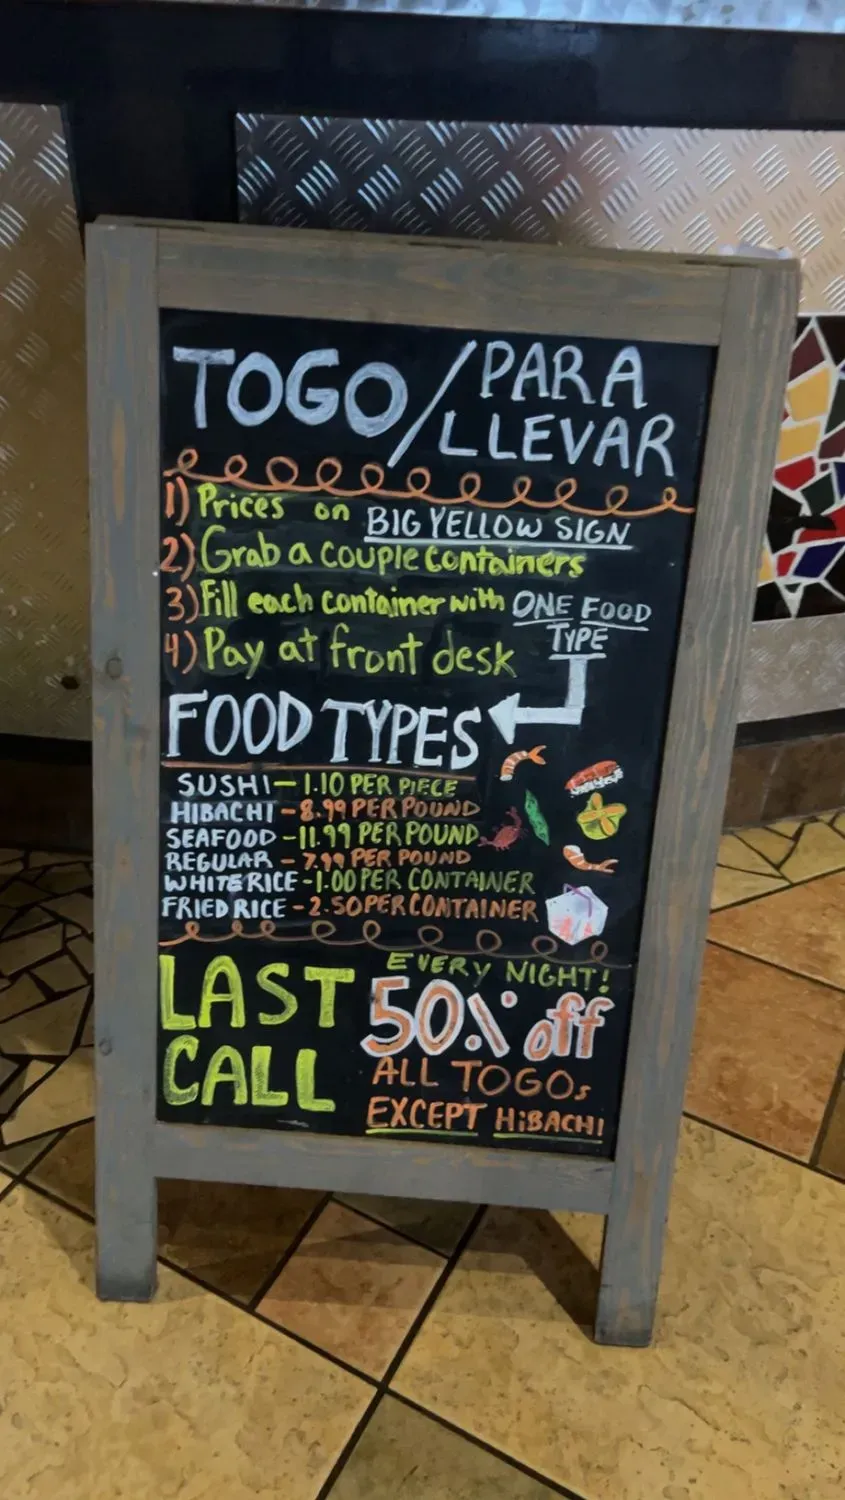 TOGO / PARA LLEVAR
1) Prices on BIG YELLOW SIGN
2) Grab a couple containers
3) Fill each container with ONE FOOD TYPE
4) Pay at front desk
FOOD TYPES
SUSHI - 1.10 PER PIECE
HIBACHI - 8.99 PER POUND
SEAFOOD - 11.99 PER POUND
REGULAR - 7.99 PER POUND
WHITE RICE - 1.00 PER CONTAINER
FRIED RICE - 2.50 PER CONTAINER
LAST CALL
EVERY NIGHT!
50% off
ALL TOGOs
EXCEPT HiBACHI